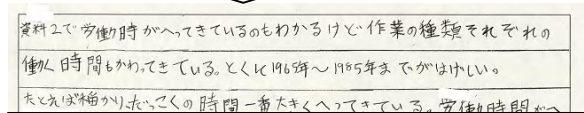 資料2で労働時がへってきているのもわかるけど作業の種類それぞれの
働く時間もかわってきている。とくに1965年〜1985年までがはげしい。
たとえば稲かり、だっこくの時間一番大きくへってきている。労働時間がへ